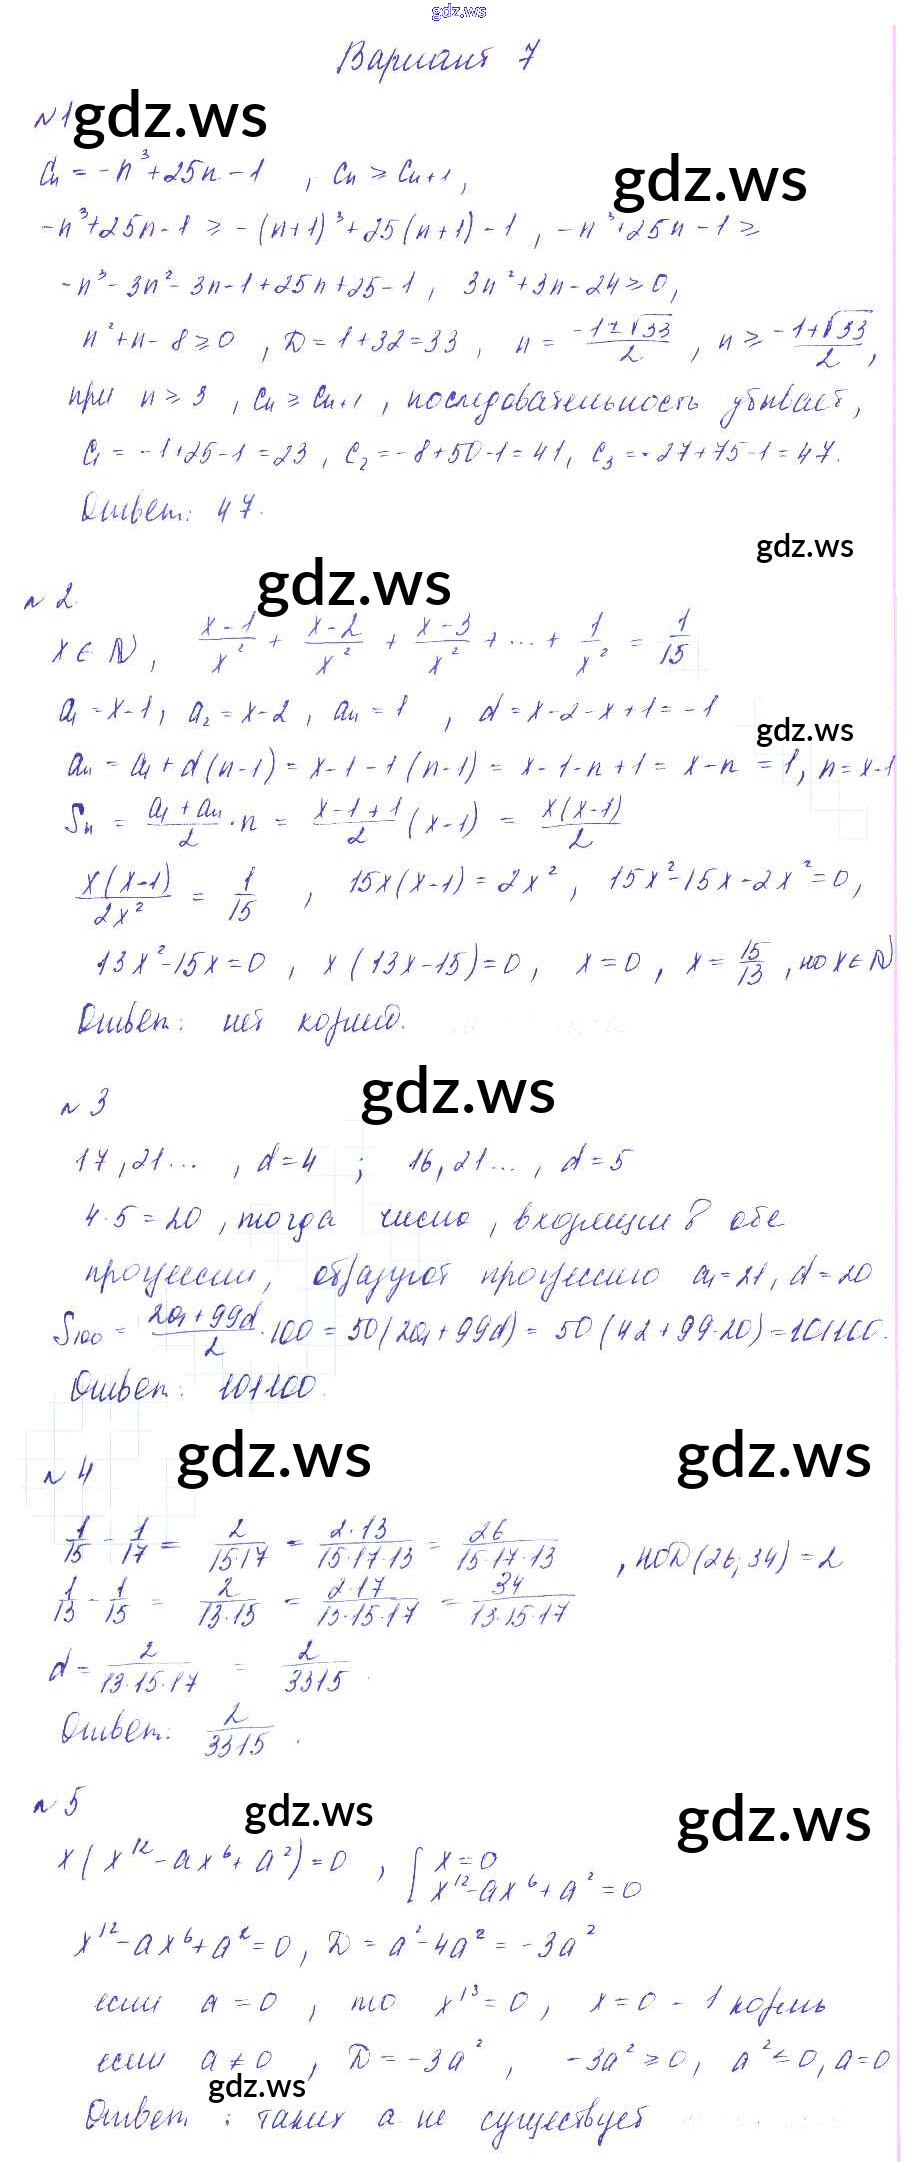 gdz.ws
Вариант 7
№1 gdz.ws
Cn = -n³+25n-1 , Cn ≥ Cn+1, gdz.ws
-n³+25n-1 ≥ -(n+1)³+25(n+1)-1 , -n³+25n-1 ≥
-n³-3n²-3n-1+25n+25-1, 3n²+3n-24≥0,
n²+n-8≥0 , D=1+32=33 , n = (-1±√33)/2 , n ≥ (-1+√33)/2 ,
при n≥3 , Cn ≥ Cn+1 , последовательность убывает,
C1 = -1+25-1=23, C2 = -8+50-1=41, C3 = -27+75-1=47.
Ответ: 47.
gdz.ws
gdz.ws
№2
x∈N, (x-1)/x² + (x-2)/x² + (x-3)/x² + ... + 1/x² = 1/15
a1 = x-1, a2 = x-2, an = 1 , d = x-2-x+1 = -1
gdz.ws
an = a1+d(n-1) = x-1-1(n-1) = x-1-n+1 = x-n = 1, n=x-1
Sn = (a1+an)/2 · n = (x-1+1)/2 (x-1) = x(x-1)/2
x(x-1)/2x² = 1/15 , 15x(x-1)=2x², 15x²-15x-2x²=0,
13x²-15x=0 , x(13x-15)=0, x=0, x=15/13, но x∈N
Ответ: нет корней.
gdz.ws
№3
17,21... , d=4 ; 16,21... , d=5
4·5=20 , тогда число, входящие в обе
прогрессии, образуют прогрессию a1=21, d=20
S100 = (2a1+99d)/2 · 100 = 50(2a1+99d) = 50(42+99·20)=101100.
Ответ: 101100.
gdz.ws gdz.ws
№4
1/15 - 1/17 = 2/(15·17) = (2·13)/(15·17·13) = 26/(15·17·13) , НОД(26;34)=2
1/13 - 1/15 = 2/(13·15) = (2·17)/(13·15·17) = 34/(13·15·17)
d = 2/(13·15·17) = 2/3315.
Ответ: 2/3315.
№5 gdz.ws gdz.ws
x(x¹²-ax⁶+a²)=0 , [ x=0
x¹²-ax⁶+a²=0
x¹²-ax⁶+a²=0, D=a²-4a²=-3a²
если a=0 , то x¹³=0, x=0 - 1 корень
если a≠0 , D=-3a² , -3a²≥0, a²≤0, a=0
gdz.ws
Ответ: таких a не существует